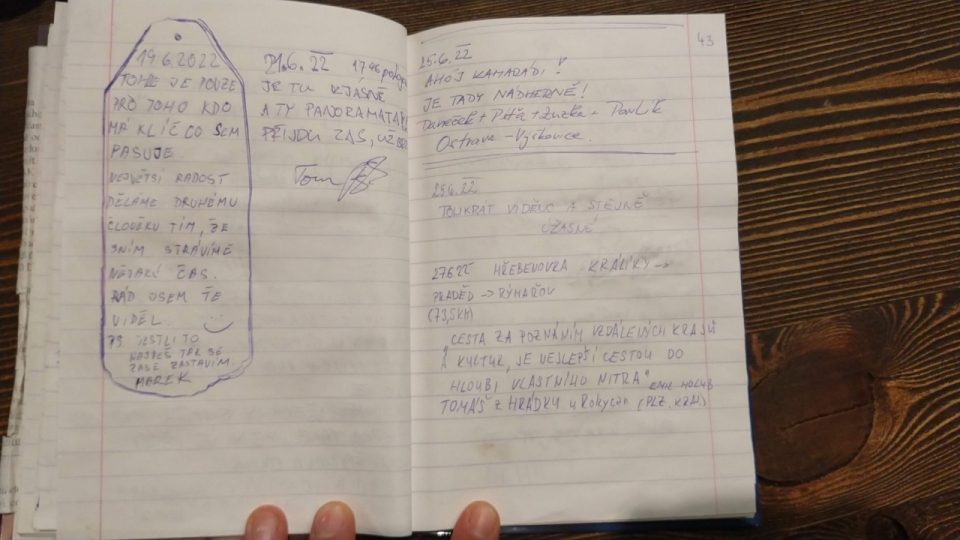 19.6.2022
TOHLE JE POUZE
PRO TOHO KDO
MÁ KLÍČ CO SEM
PASUJE
NEJVĚTŠÍ RADOST
DĚLÁME DRUHÉMU
ČLOVĚKU TÍM, ŽE
SNÍM STRÁVÍME
NĚJAKÝ ČAS.
RÁD JSEM TĚ
VIDĚL.
PS. JESTLI TO
NAJDEŠ TAK SE
ZASE ZASTAVÍM
MAREK
21.6. 22 17:46
JE TU KJÁSNĚ
A TY PANORAMATA
PŘIJDU ZAS, UŽ
Tom
43
25.6. 22
AHOJ KAMARÁDI!
JE TADY NÁDHERNĚ!
Daneček + Péťa + Zuzka + Pavlík
Ostrava - Vyškovice
25.6. 22
TOLIKRÁT VIDĚNO A STEJNĚ
ÚŽASNÉ
27.6.22 HŘEBENOVKA KRÁLÍKY →
PRADĚD → RÝMAŘOV
(73,5KM)
"CESTA ZA POZNÁNÍM VZDÁLENÝCH KRAJŮ
A KULTUR, JE NEJLEPŠÍ CESTOU DO
HLOUBI VLASTNÍHO NITRA" EMIL HOLUB
TOMÁŠ z HRÁDKU u Rokycan (PLZ. KRAJ)